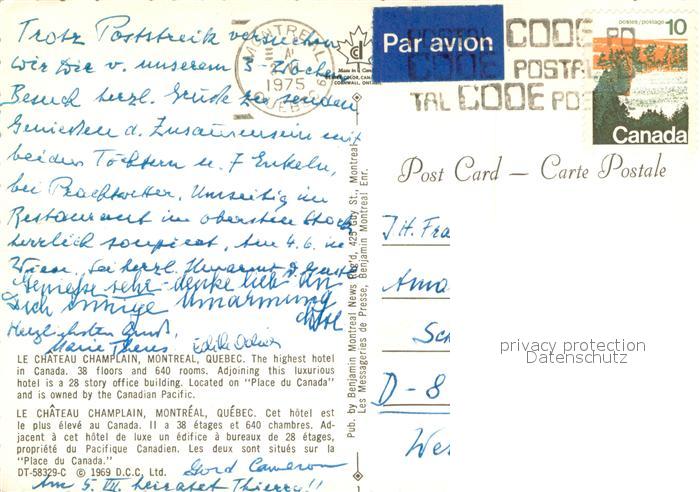 Trotz Poststreik versuchen
wir Dir v. unserem 3-Wochen
Besuch herzl. Grüße zu senden
Geniessen d. Zusammensein mit
beiden Töchtern u. 7 Enkeln,
bei Prachtwetter. Umseitig im
Restaurant im obersten Stock
herrlich soupiert. Am 4.6. in
Wien. Sei herzl. Umarmt d.
Geniesse sehr - denke lieb an
Dich innige Umarmung
Herzlichsten Gruß,
LE CHÂTEAU CHAMPLAIN, MONTREAL, QUEBEC. The highest hotel
in Canada. 38 floors and 640 rooms. Adjoining this luxurious
hotel is a 28 story office building. Located on "Place du Canada"
and is owned by the Canadian Pacific.
LE CHÂTEAU CHAMPLAIN, MONTRÉAL, QUÉBEC. Cet hôtel est
le plus élevé au Canada. Il a 38 étages et 640 chambres. Ad-
jacent à cet hôtel de luxe un édifice à bureaux de 28 étages,
propriété du Pacifique Canadien. Les deux sont situés sur la
"Place du Canada."
DT-58329-C © 1969 D.C.C. Ltd.
Gord Cameron
Am 5. VII. heiratet Thierry!!
Pub. by Benjamin Montreal News Reg'd, 425 Guy St., Montreal
Les Messageries de Presse, Benjamin Montreal Enr.
MONTREAL
1975
QUEBEC
Par avion
POSTAL CODE PO
CODE POSTAL
TAL CODE POS
postes/postage 10
Canada
Post Card — Carte Postale
D-8
privacy protection
Datenschutz